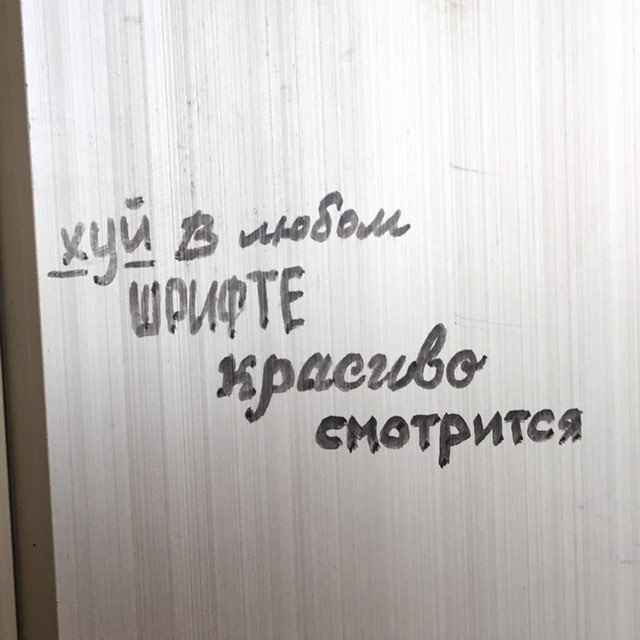 хуй в любом
ШРИФТЕ
красиво
смотрится